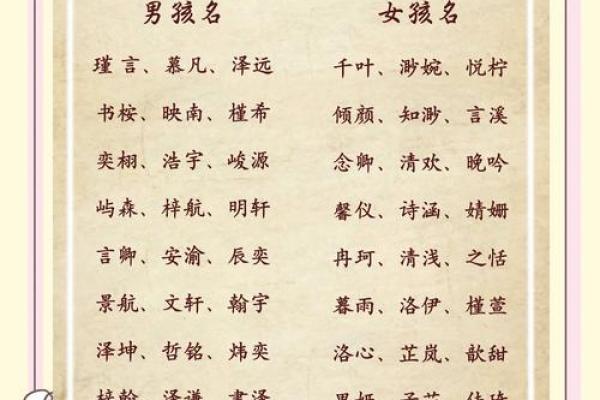 男孩名 女孩名
瑾言、慕凡、泽远 千叶、渺婉、悦柠
书桉、映南、槿希 倾颜、知渺、言溪
奕栩、浩宇、峻源 念卿、清欢、晚吟
屿森、梓航、明轩 馨仪、诗涵、婧姗
言卿、安渝、辰奕 冉珂、清浅、之恬
景航、文轩、翰宇 暮雨、洛伊、槿萱
泽坤、哲铭、炜奕 洛心、芷岚、歆甜
梓翰、泽谦、书泽